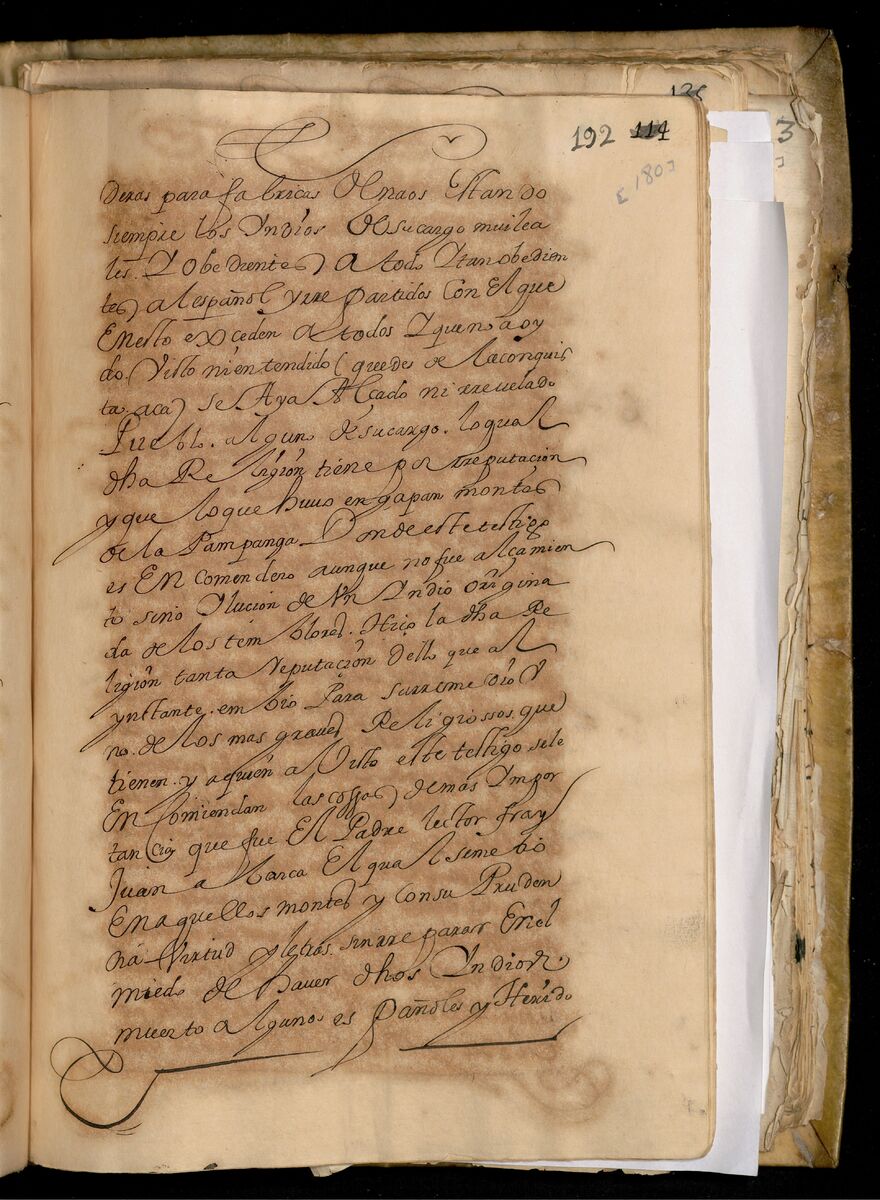 192 114
[180]
deras para fabricas de naos Estando
siempre los Yndios de su cargo muilea
les. Y obedientes a todo Y tan obedien
tes al español y rre partidos Con El que
En esto exceden a todos Y que no a oy
do Visto ni entendido (que des de la conquis
ta aca) se Aya Alçado ni rrevelado
Pueblo. alguno de su cargo. lo qual
dha Religion tiene por rreputacion
y que lo que huuo en gapan montes
de la Pampanga Donde este testigo
es EN Comendero aunque no fue alçamien
to sino Ylucion de Vn Yndio origina
da de los temblores. Hiço la dha Re
ligion tanta Reputacion dello que al
ynstante. embio Para su rremedio V
no. de los mas graues Religiossos que
tienen. y a quien a Visto este testigo sele
EnComiendan las cossas de mas Ympor
tancia que fue El Padre lector fray
Juan abarca El qual se me tio
En aquellos montes y con su Pruden
cia Virtud y letras. sin rre parar En el
miedo de hauer dhos Yndios
muerto algunos es Pañoles y Herido